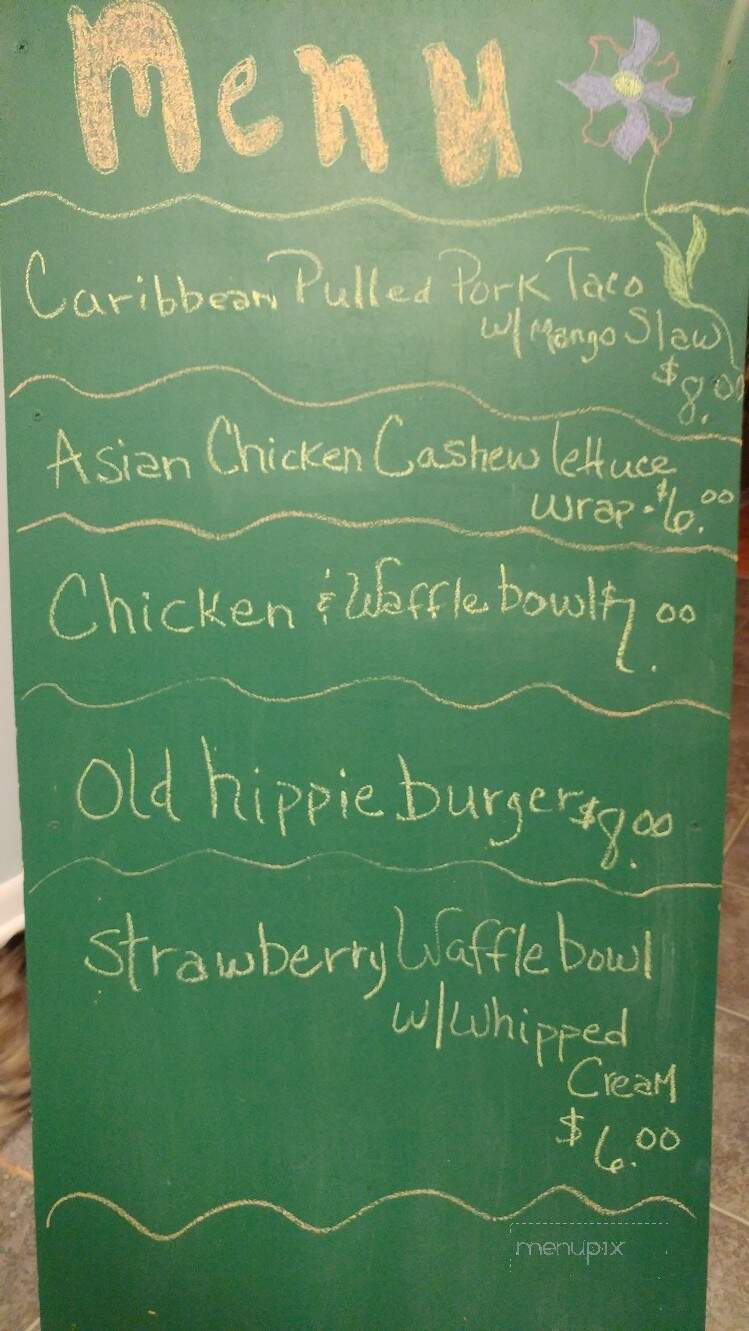 Menu
Caribbean Pulled Pork Taco
w/ Mango Slaw
$8.00
Asian Chicken Cashew lettuce
wrap - $6.00
Chicken & Waffle bowl $7.00
Old hippie burger $8.00
Strawberry Waffle bowl
w/ Whipped
Cream
$6.00
menupix